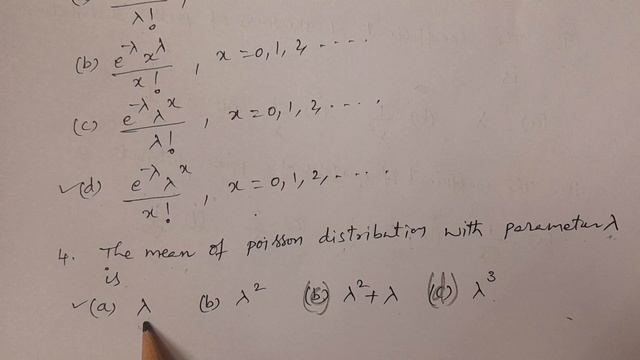 λ!
(b) e^-λ x^λ / x! , x = 0, 1, 2, ....
(c) e^-λ λ^x / λ! , x = 0, 1, 2, ....
✓(d) e^-λ λ^x / x! , x = 0, 1, 2, ....
4. The mean of poisson distribution with parameter λ
is
✓(a) λ (b) λ² (c) λ² + λ (d) λ³